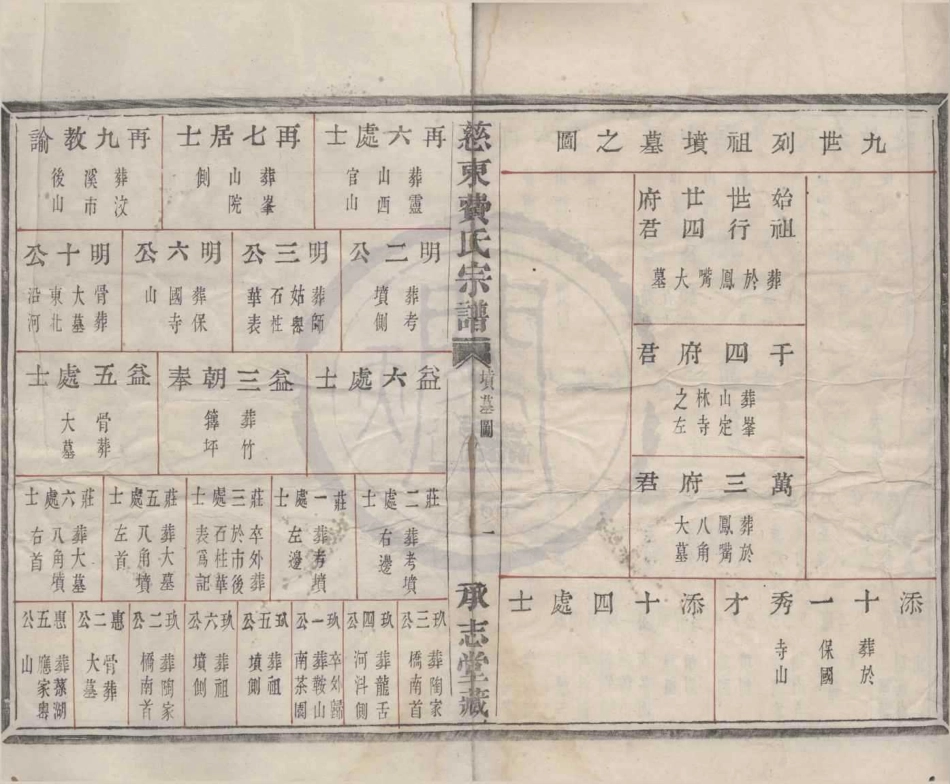 九世列祖墳墓之圖
始祖世行廿四府君
葬於鳳嘴大墓
千四府君
葬峯山定林寺之左
萬三府君
葬於鳳嘴八角大墓
添十一秀才
添十四處士
葬於保國寺山
慈東費氏宗譜
墳墓圖
一
承志堂藏
再六處士
葬靈山西官山
再七居士
葬峯山院側
再九教諭
葬汶溪市後山
明二公
葬考墳側
明三公
葬師姑嶴石柱華表
明六公
葬保國寺山
明十公
骨葬大墓東北沿河
益六處士
益三朝奉
葬竹籜坪
益五處士
骨葬大墓
莊二處士
葬考墳右邊
莊一處士
葬考墳左邊
莊三處士
卒外葬於市後石柱華表爲記
莊五處士
葬大墓八角墳左首
莊六處士
葬大墓八角墳右首
玖三公
葬陶家橋南首
玖四公
葬龍舌河汊側
玖一公
卒外歸葬鞍山南茶園
玖五公
葬祖墳側
玖六公
葬祖墳側
玖二公
葬陶家橋南首
惠二公
骨葬大墓
惠五公
葬蔡湖應家嶴山